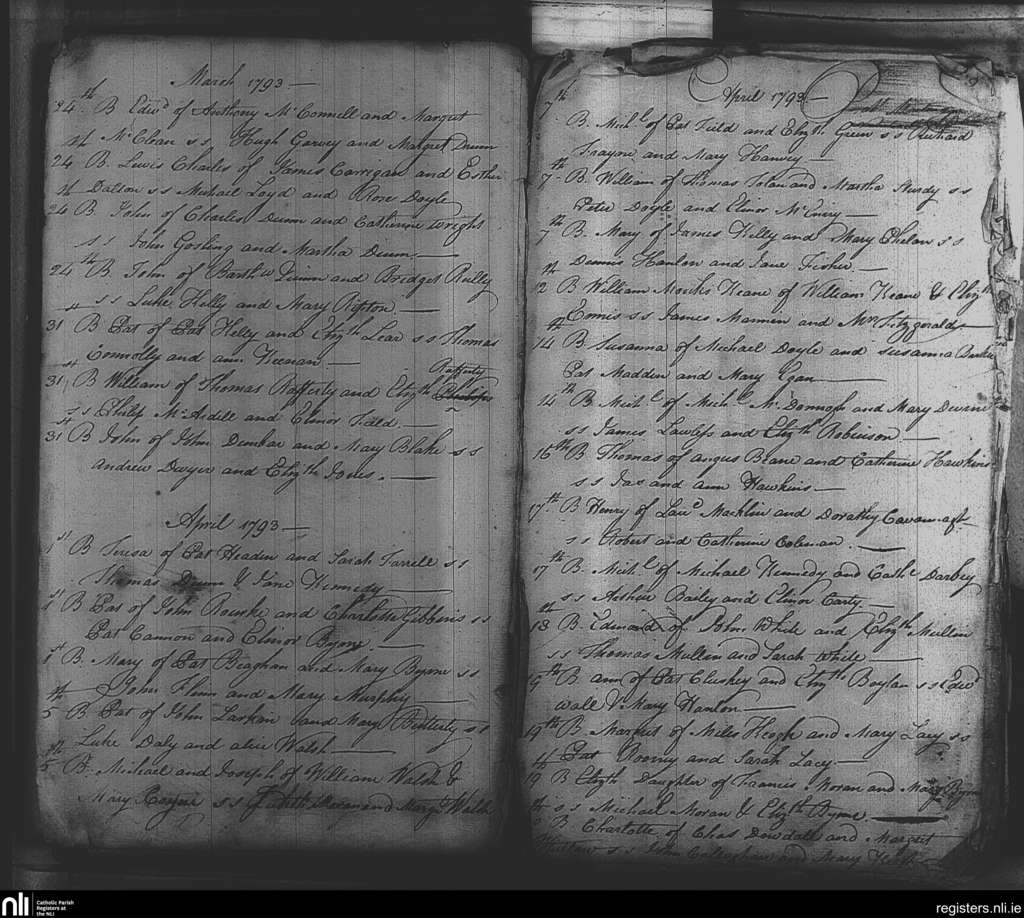 March 1793 —
24th B Edwd of Anthony McConnell and Margret
McClean s s Hugh Garvey and Margret Dunn
24th B. Lewis Charles of James Carrigan and Esther
Dalton s s Michail Loyd and Rose Doyle
24th B John of Charles Dunn and Catherine Wright
s s John Gosling and Martha Dunn —
24th B. John of Barthw Dunn and Bridget Reilly
s s Luke Kelly and Mary —
31st B Pat of Pat Kelly and Elizth Lear s s Thomas
Connolly and ann Keenan —
Rafferty
31st B William of Thomas Rafferty and Elizth
s s Philip McArdill and Elinor Field —
31st B John of John Dunbar and Mary Blake s s
Andrew Dwyer and Elizth —
April 1793 —
1st B Teresa of Pat Headen and Sarah Farrell s s
Thomas Dunn & Jane Kennedy —
1st B Pat of John Rourke and Charlotte Gibbins s s
Pat Cannon and Elinor Byrne —
1st B. Mary of Pat Beaghan and Mary Byrne s s
John Flinn and Mary Murphy —
5th B Pat of John Larkin and Mary s s
Luke Daly and alice Walsh —
5th B. Michael and Joseph of William Walsh &
Mary s s Judith Doran and Mary Walsh
April 1793 —
7th B. Michl of Pat Field and Elizth Green s s Richard
Frayne and Mary Harvey —
7th B. William of Thomas Tolan and Martha Sturdy s s
Peter Doyle and Elinor McEniry —
7th B. Mary of James Kelly and Mary Phelan s s
Dennis Hanlon and Jane Fisher —
12th B William Monks Keane of William Keane & Elizth
s s James Mannin and Mrs Fitzgerald —
14th B Susanna of Michael Doyle and Susanna
Pat Madden and Mary Egan —
14th B Michl of Michl McDonnogh and Mary
s s James Lawless and Elizth Robinson —
16th B Thomas of angus Beane and Catherine Hawkins
s s Jas and ann Hawkins —
17th B Henry of Laud Macklin and Dorathy Cavanagh
s s Robert and Catherine Coleman —
17th B. Michl of Michael Kennedy and Cathe Darbey
s s Arthur Bailey and Elinor Carty —
18th B. Edmond of John White and Elizth Mullin
s s Thomas Mullin and Sarah White —
19th B ann of Pat Cluskey and Elizth Boylan s s Edwd
Wall & Mary Hanlon —
19th B. Margret of Miles Keogh and Mary Lacy s s
Pat Rooney and Sarah Lacy —
19th B Elizth Daughter of Francis Moran and Mary Byrne
s s Michael Moran & Elizth Byrne —
B Charlotte of Chas Dowdall and Margret
s s John Calaghan and Mary
nli
Catholic Parish
Registers at
the NLI
registers.nli.ie